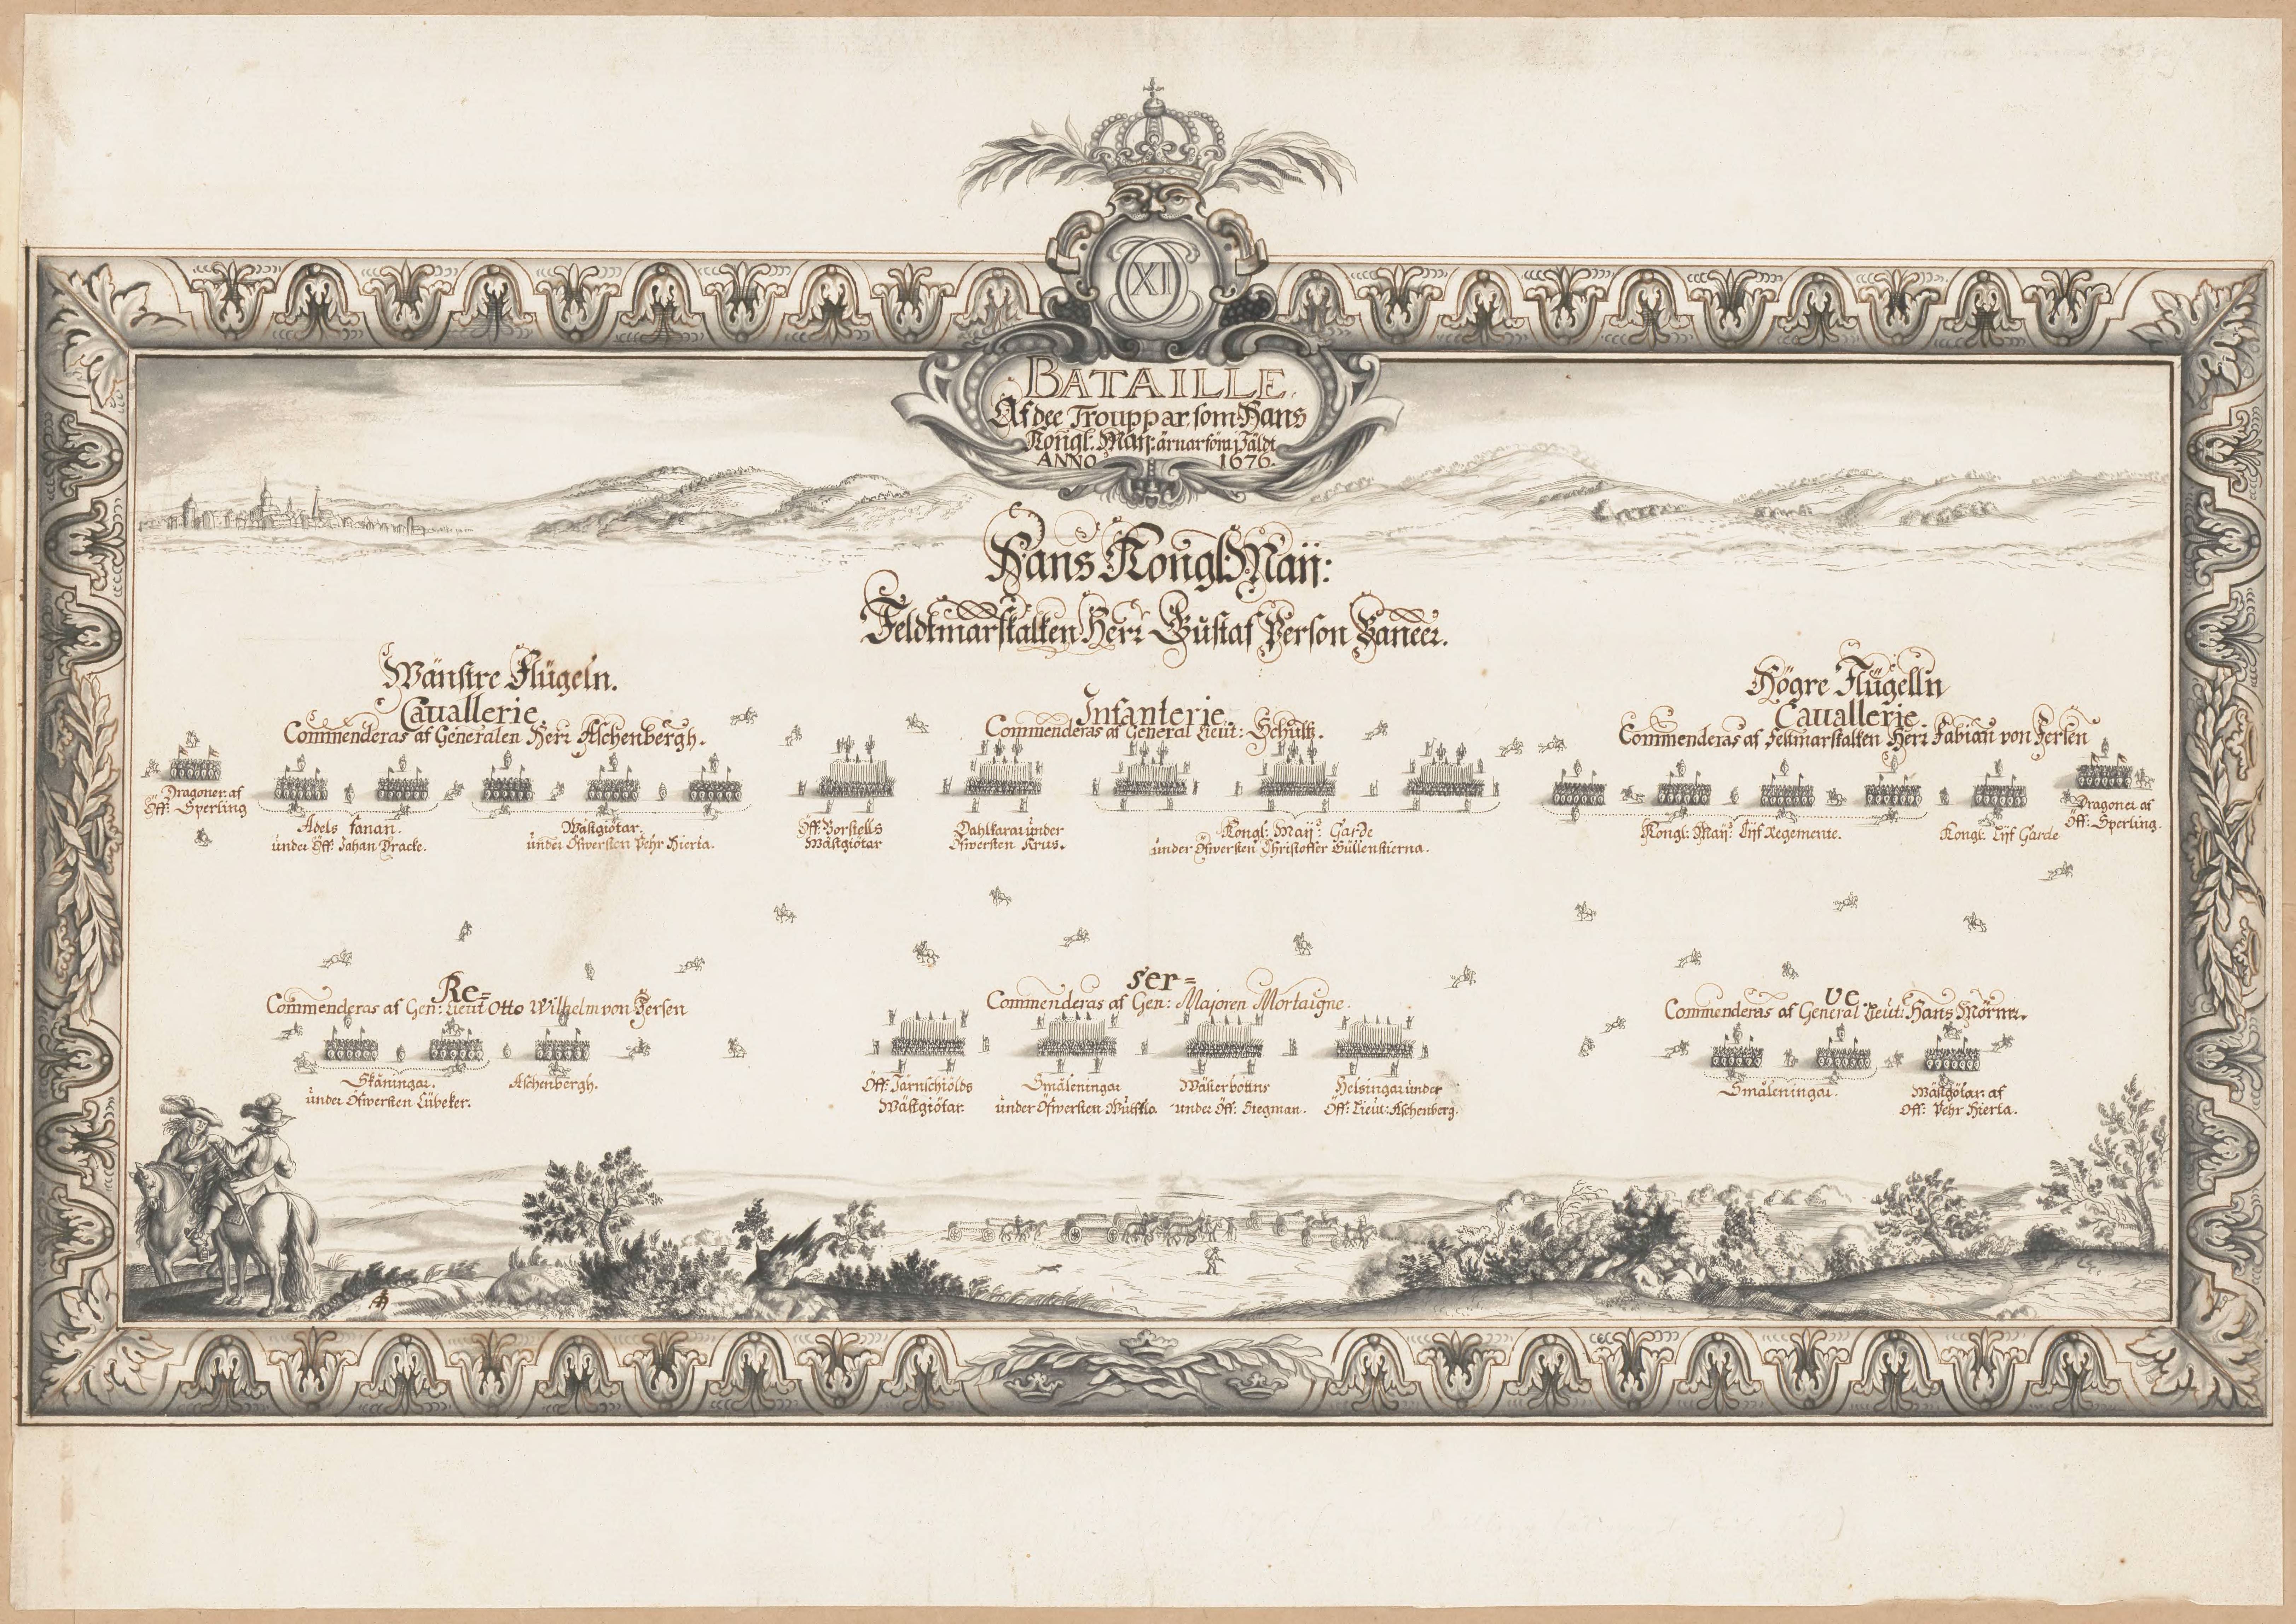 XI
BATAILLE.
Af dee Trouppar, som Hans
Kongl: Maij: ärnar föra i Fäldt
ANNO 1676.
Hans Kongl: Maij:
Feldtmarskalken Herr Gustaf Person Baneer.
Wänstre Flügeln.
Cauallerie.
Commenderas af Generalen Herr Aschenbergh.
Infanterie.
Commenderas af General Lieut: Schultz.
Högre Flügelln
Cauallerie.
Commenderas af Feltmarskalken Herr Fabian von Fersen
Dragoner af
Öff: Sperling
Adels fanan.
under Öff: Johan Dracke.
Wästgiötar.
under Öfwersten Pehr Hierta.
Öff: Borstells
Wästgiötar
Dahlkarar under
Öfwersten Krus.
Kongl: Maijs: Garde
under Öfwersten Christoffer Güllenstierna.
Kongl: Maijs: Lijf Regemente.
Kongl: Lijf Garde
Dragoner af
Öff: Sperling.
Re=
Commenderas af Gen: Lieut Otto Wilhelm von Fersen
ser=
Commenderas af Gen: Majoren Mortaigne.
ve.
Commenderas af General Leut: Hans Mörner.
Skåningar.
under Öfwersten Lübeker.
Aschenbergh.
Öff: Järnschiölds
Wästgiötar.
Småleningar
under Öfwersten
Wästerbotns
under Öff: Stegman.
Helsingar under
Öff: Lieut: Aschenberg.
Småleningar.
Wästgötar: af
Öff: Pehr Hierta.